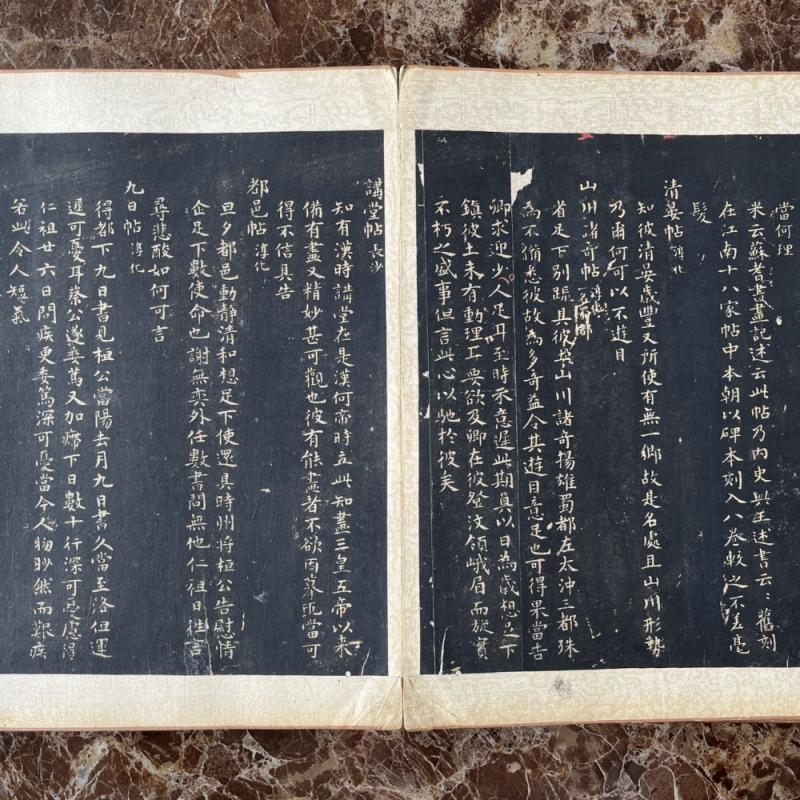 當何理
米云蘇耆書畫記述云此帖乃內史與王述書云云舊刻
在江南十八家帖中本朝以碑本刻入八卷較之不差毫
髮
清晏帖 淳化
知彼清晏歲豐又所使有無一鄉故是名處且山川形勢
乃爾何可以不遊目
山川諸奇帖 淳化
省足下別疏具彼土山川諸奇揚雄蜀都左太沖三都殊
為不備悉彼故為多奇益令其遊目意足也可得果當告
卿求迎少人足耳至時示意遲此期真以日為歲想足下
鎮彼土未有動理耳要欲及卿在彼登汶領峨眉而旋實
不朽之盛事但言此心以馳於彼矣
講堂帖 長沙
知有漢時講堂在是漢何帝時立此知畫三皇五帝以來
備有畫又精妙甚可觀也彼有能畫者不欲因摹取當可
得不信具告
都邑帖 淳化
旦夕都邑動靜清和想足下使還具時州將桓公告慰情
企足下數使命也謝無奕外任數書問無他仁祖日往言
尋悲酸如何可言
九日帖 淳化
得都下九日書見桓公當陽去月九日書久當至洛但運
遲可憂耳蔡公遂委篤又加癖下日數十行深可憂慮得
仁祖廿六日問疾更委篤深可憂當今人物眇然而艱疾
若此令人短氣